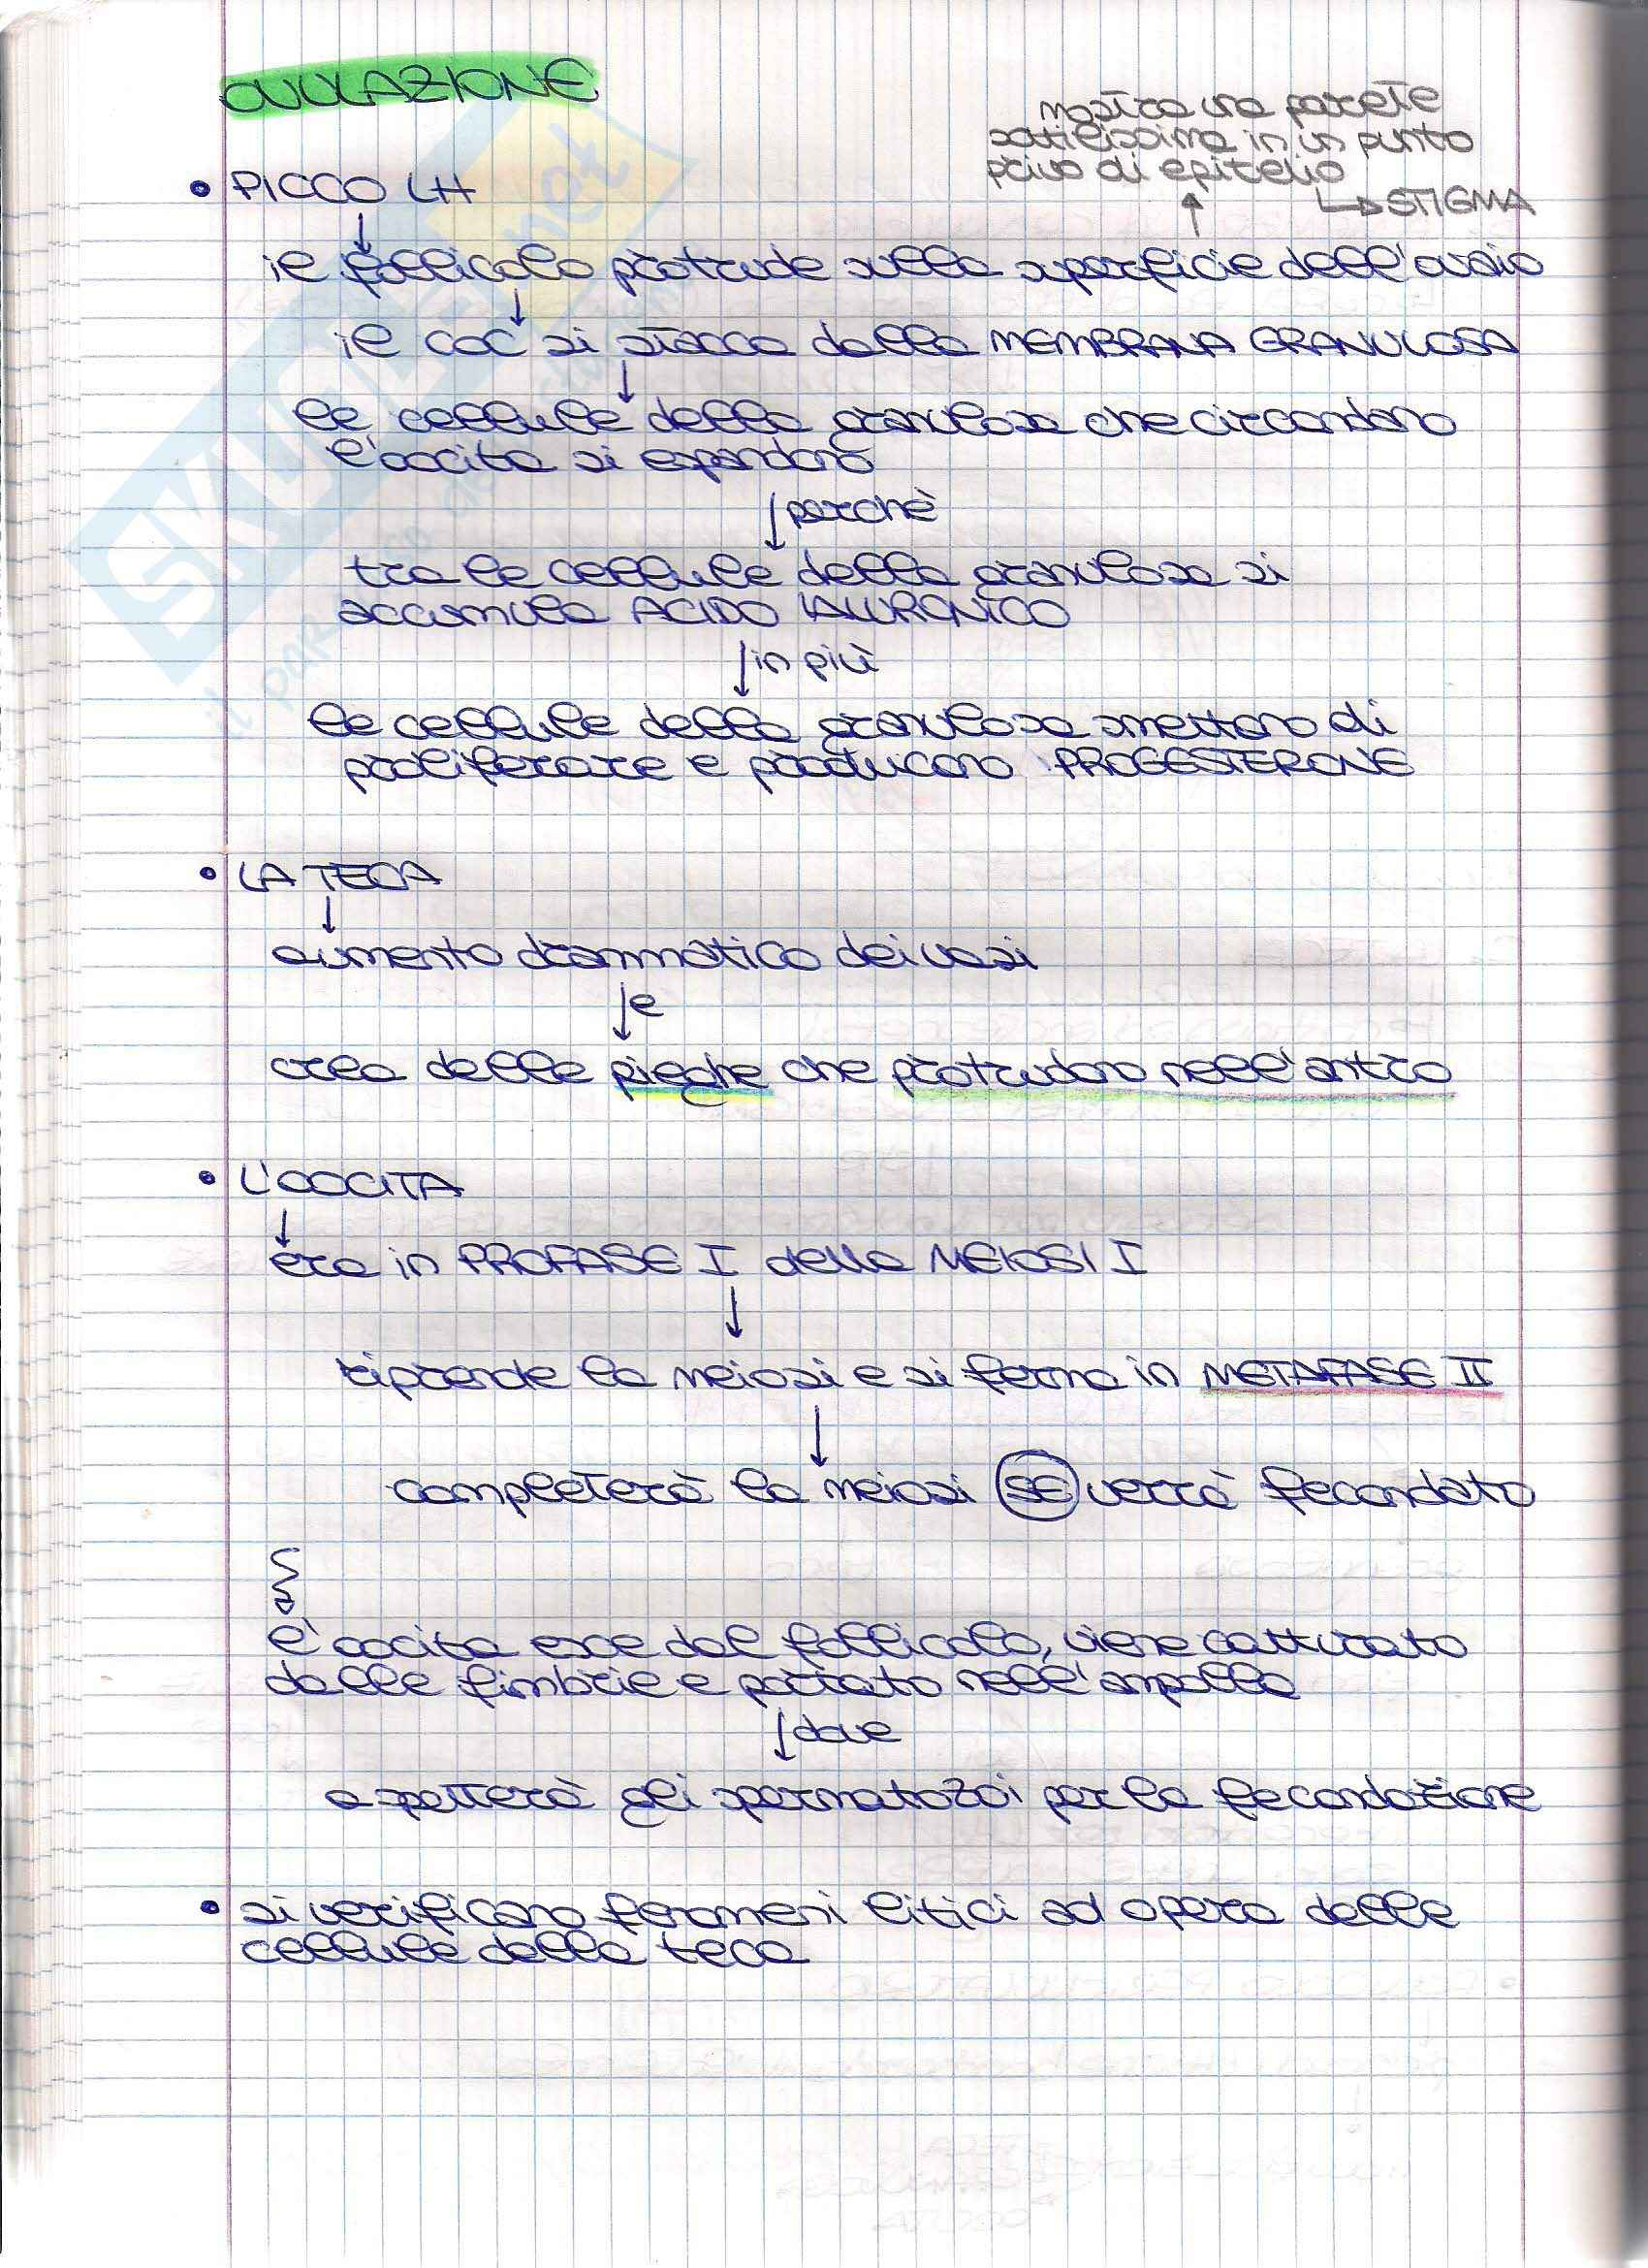 OVULAZIONE
mostra una parete
sottilissima in un punto
privo di epitelio
↳ STIGMA
• PICCO LH
il follicolo protrude sulla superficie dell'ovaio
il COC si stacca dalla MEMBRANA GRANULOSA
le cellule della granulosa che circondano
l'oocita si espandono
perchè
tra le cellule della granulosa si
accumula ACIDO IALURONICO
in più
le cellule della granulosa smettono di
proliferare e producono PROGESTERONE
• LA TECA
aumento drammatico dei vasi
e
crea delle pieghe che protrudono nell'antro
• L'OOCITA
era in PROFASE I della MEIOSI I
riprende la meiosi e si ferma in METAFASE II
completerà la meiosi SE verrà fecondato
l'oocita esce dal follicolo, viene catturato
dalle fimbrie e portato nell'ampolla
dove
aspetterà gli spermatozoi per la fecondazione
• si verificano fenomeni litici ad opera delle
cellule della teca